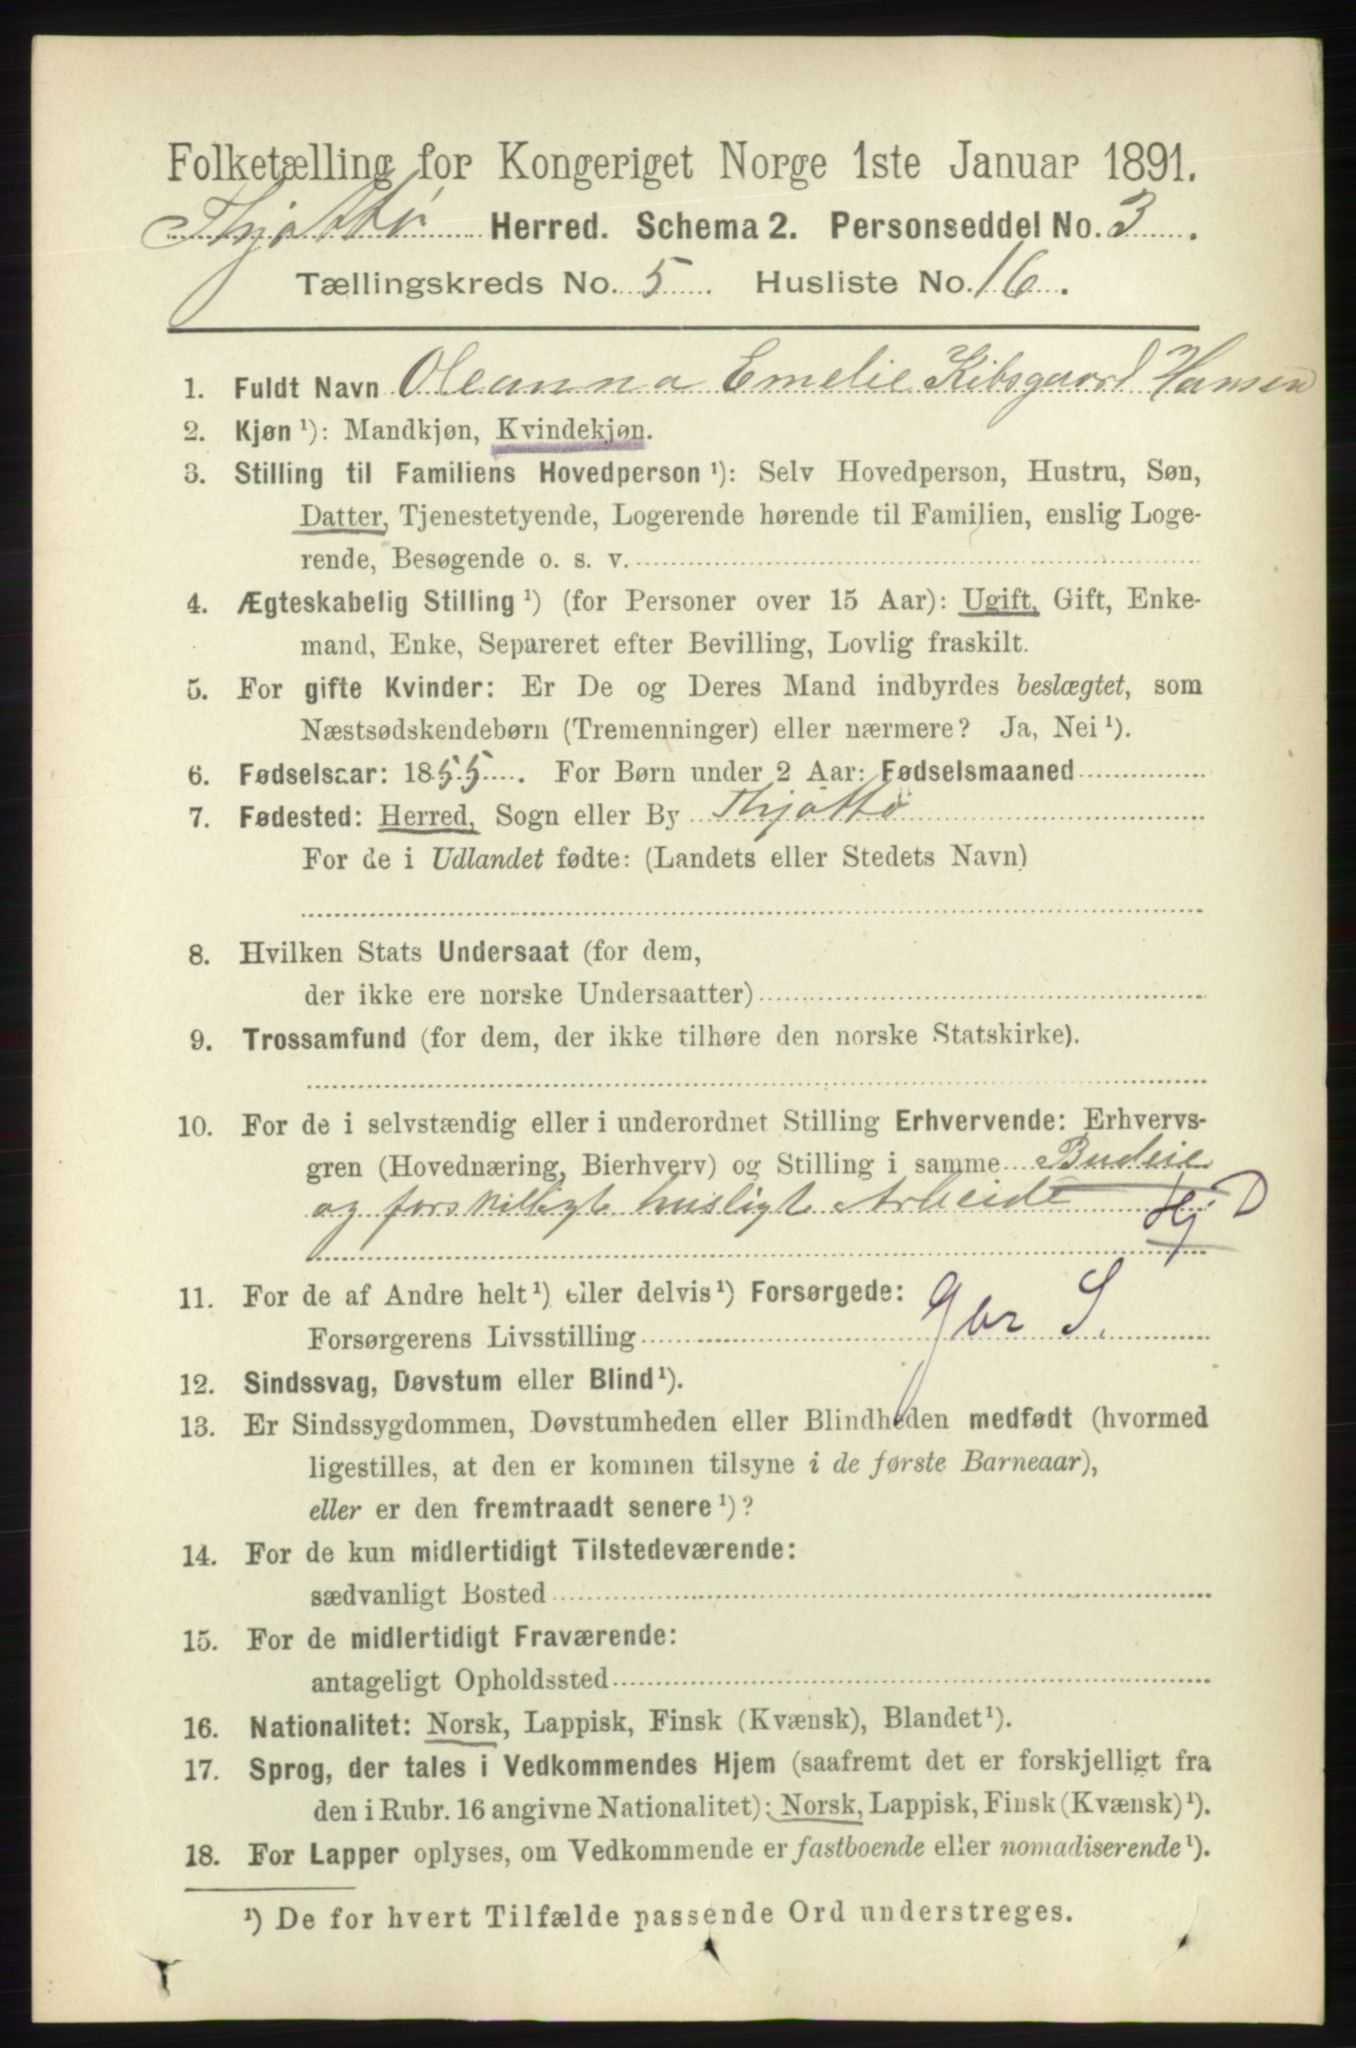 Folketælling for Kongeriget Norge 1ste Januar 1891.
Thjøttø Herred. Schema 2. Personseddel No. 3.
Tællingskreds No. 5. Husliste No. 16.
1. Fuldt Navn Oleanna Emelie Kibsgaard Hansen
2. Kjøn ¹): Mandkjøn, Kvindekjøn.
3. Stilling til Familiens Hovedperson ¹): Selv Hovedperson, Hustru, Søn,
Datter, Tjenestetyende, Logerende hørende til Familien, enslig Loge-
rende, Besøgende o. s. v.
4. Ægteskabelig Stilling ¹) (for Personer over 15 Aar): Ugift, Gift, Enke-
mand, Enke, Separeret efter Bevilling, Lovlig fraskilt.
5. For gifte Kvinder: Er De og Deres Mand indbyrdes beslægtet, som
Næstsødskendebørn (Tremenninger) eller nærmere? Ja, Nei ¹).
6. Fødselsaar: 1855. For Børn under 2 Aar: Fødselsmaaned
7. Fødested: Herred, Sogn eller By Thjøttø
For de i Udlandet fødte: (Landets eller Stedets Navn)
8. Hvilken Stats Undersaat (for dem,
der ikke ere norske Undersaatter)
9. Trossamfund (for dem, der ikke tilhøre den norske Statskirke).
10. For de i selvstændig eller i underordnet Stilling Erhvervende: Erhvervs-
gren (Hovednæring, Bierhverv) og Stilling i samme Budeie
og forskilligt husligt Arbeide Hj D
11. For de af Andre helt ¹) eller delvis ¹) Forsørgede:
Forsørgerens Livsstilling Gbr S.
12. Sindssvag, Døvstum eller Blind ¹).
13. Er Sindssygdommen, Døvstumheden eller Blindheden medfødt (hvormed
ligestilles, at den er kommen tilsyne i de første Barneaar),
eller er den fremtraadt senere ¹)?
14. For de kun midlertidigt Tilstedeværende:
sædvanligt Bosted
15. For de midlertidigt Fraværende:
antageligt Opholdssted
16. Nationalitet: Norsk, Lappisk, Finsk (Kvænsk), Blandet ¹).
17. Sprog, der tales i Vedkommendes Hjem (saafremt det er forskjelligt fra
den i Rubr. 16 angivne Nationalitet): Norsk, Lappisk, Finsk (Kvænsk) ¹).
18. For Lapper oplyses, om Vedkommende er fastboende eller nomadiserende ¹).
¹) De for hvert Tilfælde passende Ord understreges.